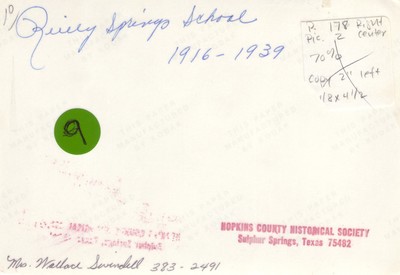 10
Reiley Springs School
1916-1939
R 178 Right
Pic. 2 Center
70%
Copy 2" left
1/8 x 4 1/2
9
HOPKINS COUNTY HISTORICAL SOCIETY
Sulphur Springs, Texas 75482
Mrs. Wallace Swindell 383-2491